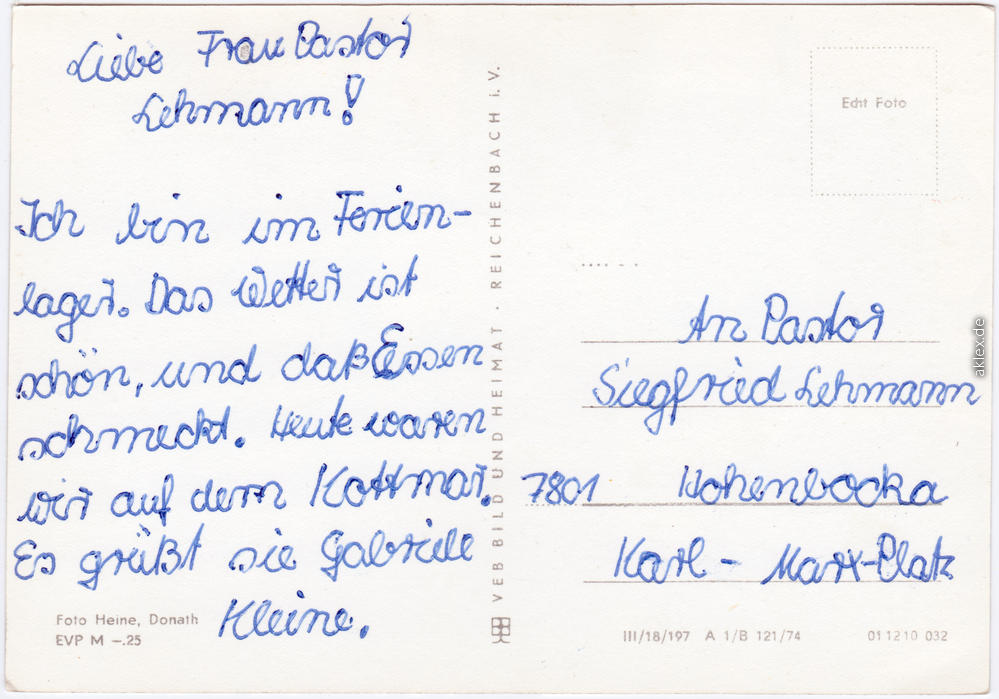 Liebe Frau Pastor
Lehmann!
Ich bin im Ferien-
lager. Das Wetter ist
schön, und daß Essen
schmeckt. Heute waren
wir auf dem Kottmar.
Es grüßt sie Gabriele
Kleine.
Foto Heine, Donath
EVP M –.25
VEB BILD UND HEIMAT · REICHENBACH i. V.
Echt Foto
An Pastor
Siegfried Lehmann
7801 Hohenbocka
Karl - Marx-Platz
III/18/197 A 1/B 121/74 01 12 10 032
aklex.de